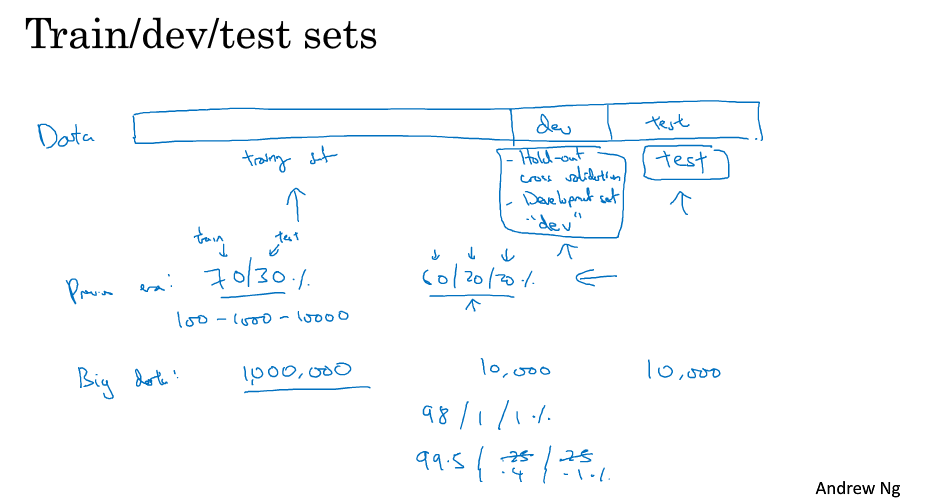 Train/dev/test sets
Data
dev
test
training set
- Hold-out
cross validation
- Development set
"dev"
test
train test
Previous era: 70/30% 60/20/20%
100 - 1000 - 10000
Big data: 1,000,000 10,000 10,000
98/1/1%
99.5 / 25 / 25
.4 .1%
Andrew Ng